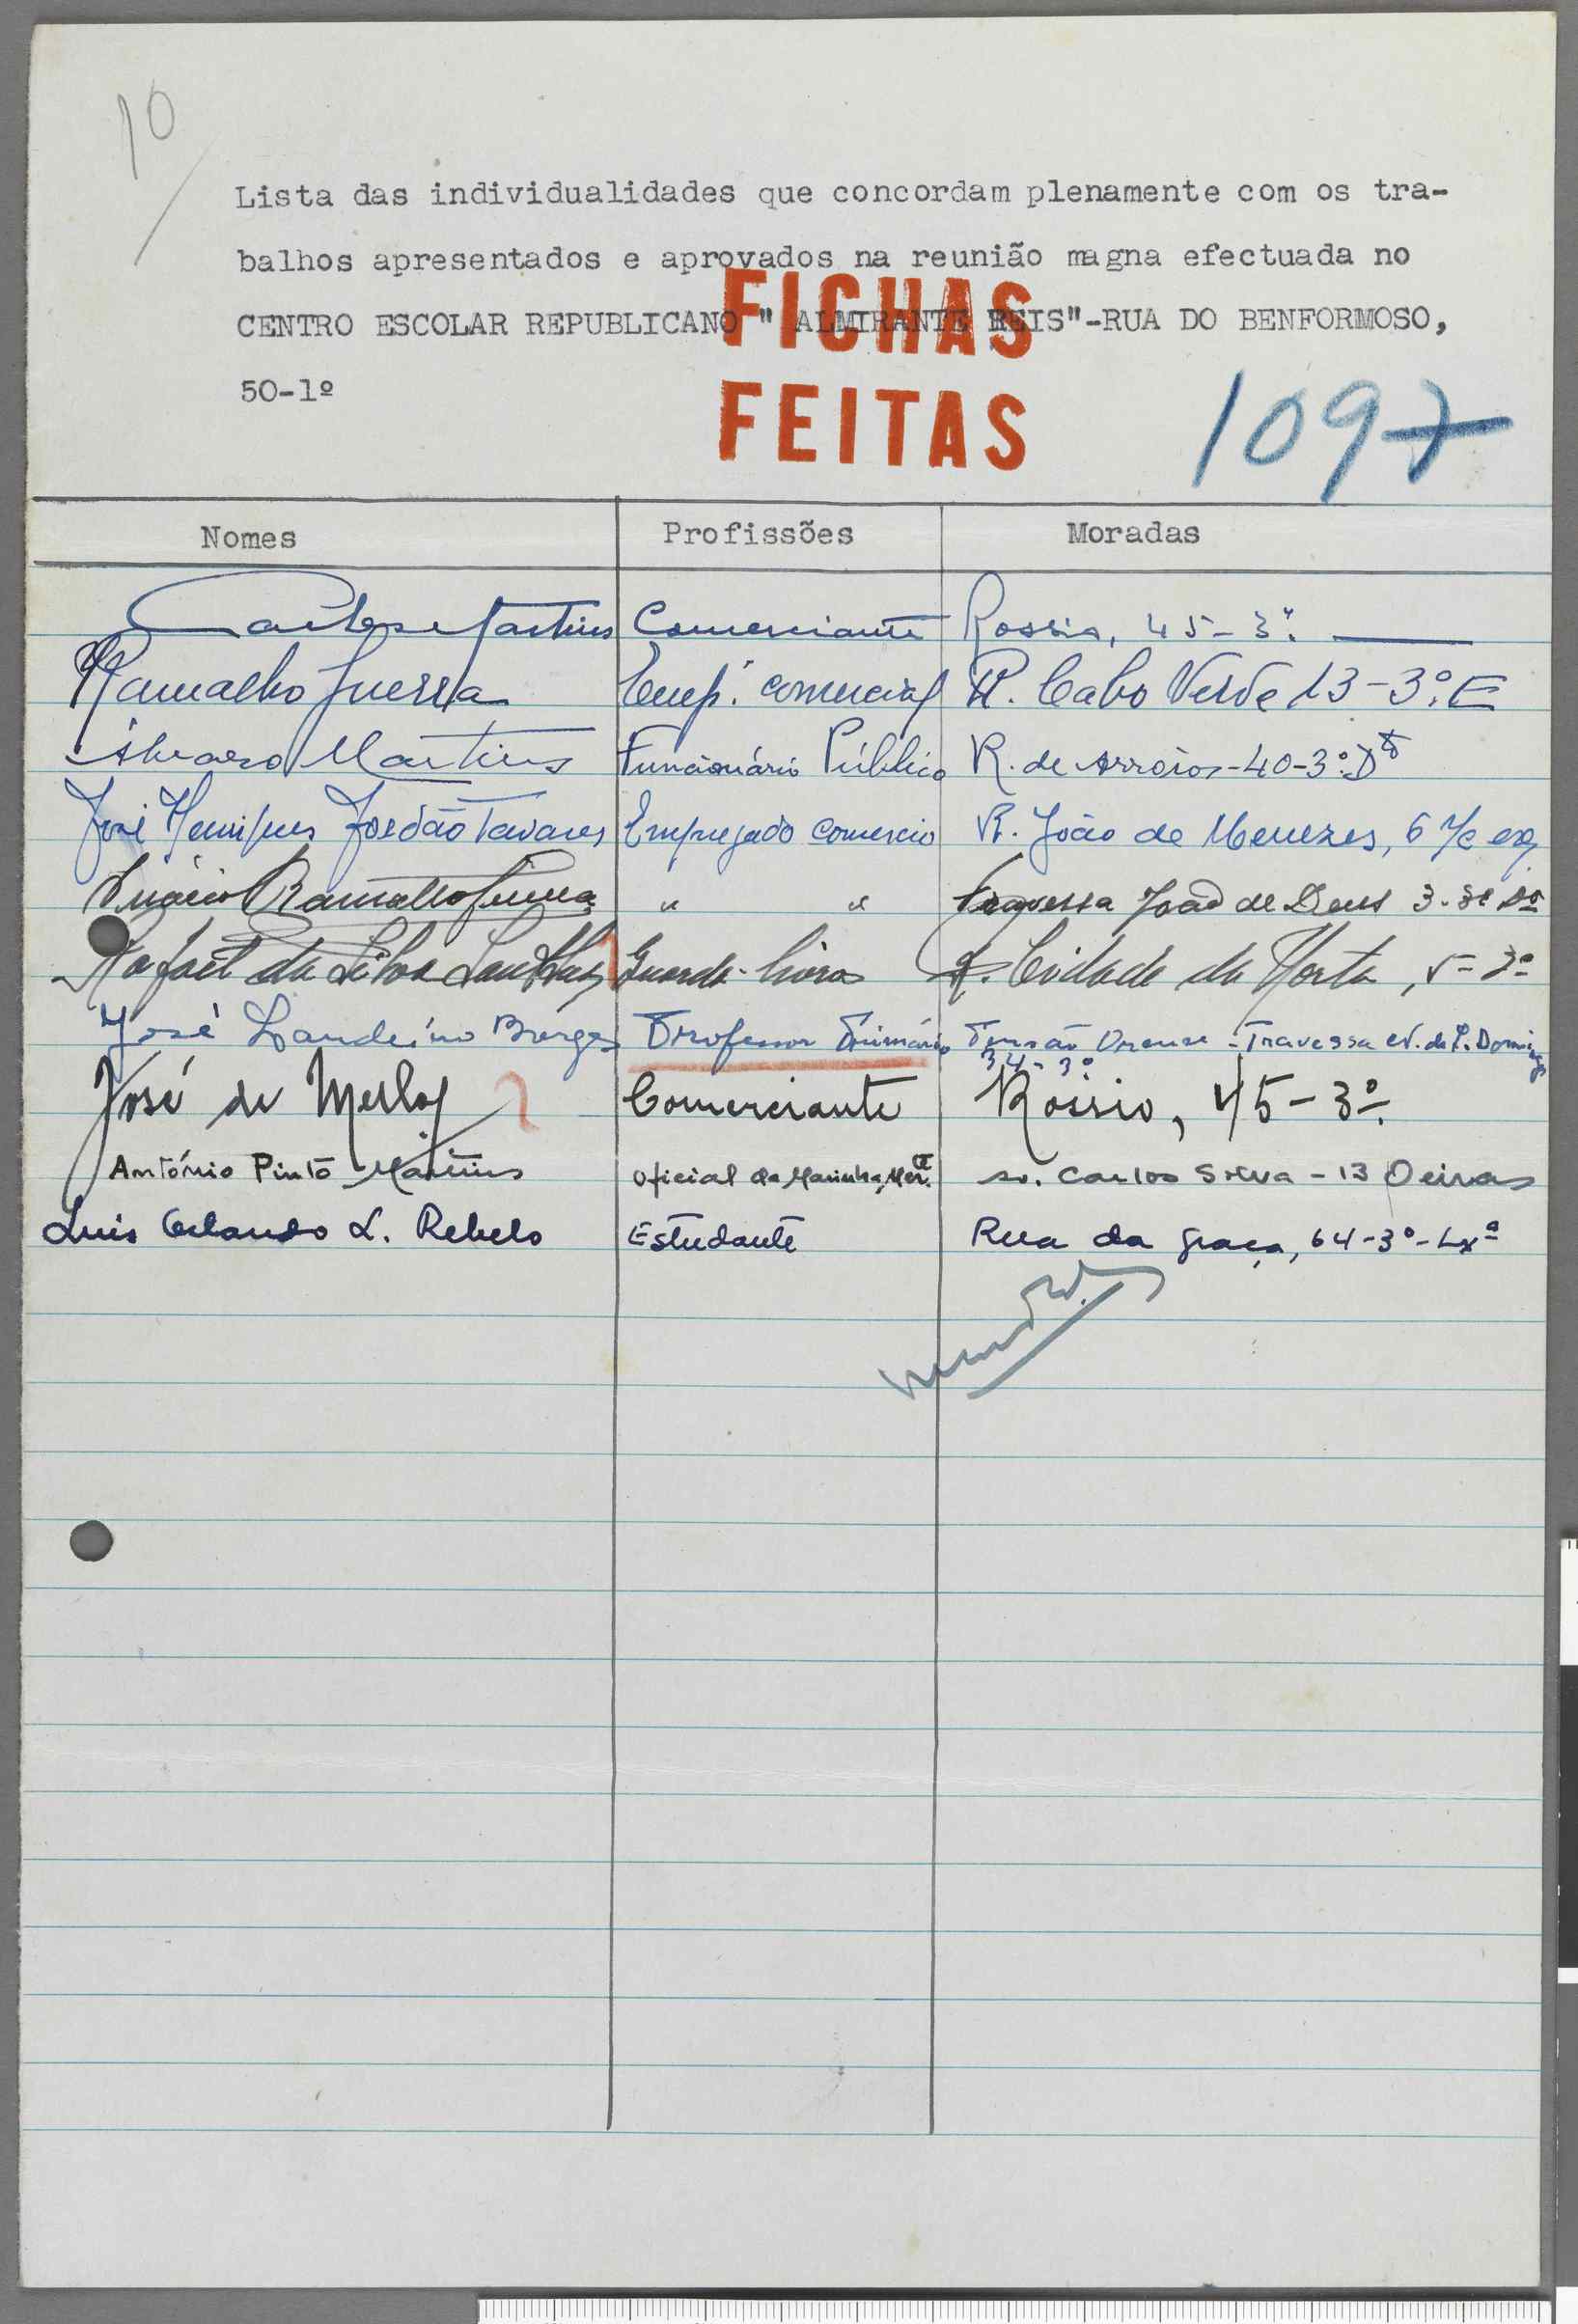 10
Lista das individualidades que concordam plenamente com os tra-
balhos apresentados e aprovados na reunião magna efectuada no
CENTRO ESCOLAR REPUBLICANO " ALMIRANTE REIS"-RUA DO BENFORMOSO,
50-1º
FICHAS
FEITAS
1097
Nomes Profissões Moradas
Martins Comerciante Rossio, 45-3º.
Ramalho Guerra Emp. comercial R. Cabo Verde 13-3º.E
Álvaro Martins Funcionário Público R. de Arroios-40-3º.Dto
José Henriques Jordão Tavares Empregado comercio R. João de Menezes, 6 r/c esq
Ramalho Guerra " " Travessa João de Deus 3-3º Dº
Rafael da Silva Guarda-livros R. Cidade da Horta, 5-3º
José Landeiro Borges Professor Primário Pensão Orense - Travessa N. de S. Domingos
34-3º
José de Comerciante Rossio, 45-3º.
António Pinto Martins Oficial da Marinha Mer.te Av. Carlos Silva-13 Oeiras
Luis Orlando L. Rebelo Estudante Rua da Graça, 64-3º-Lxª